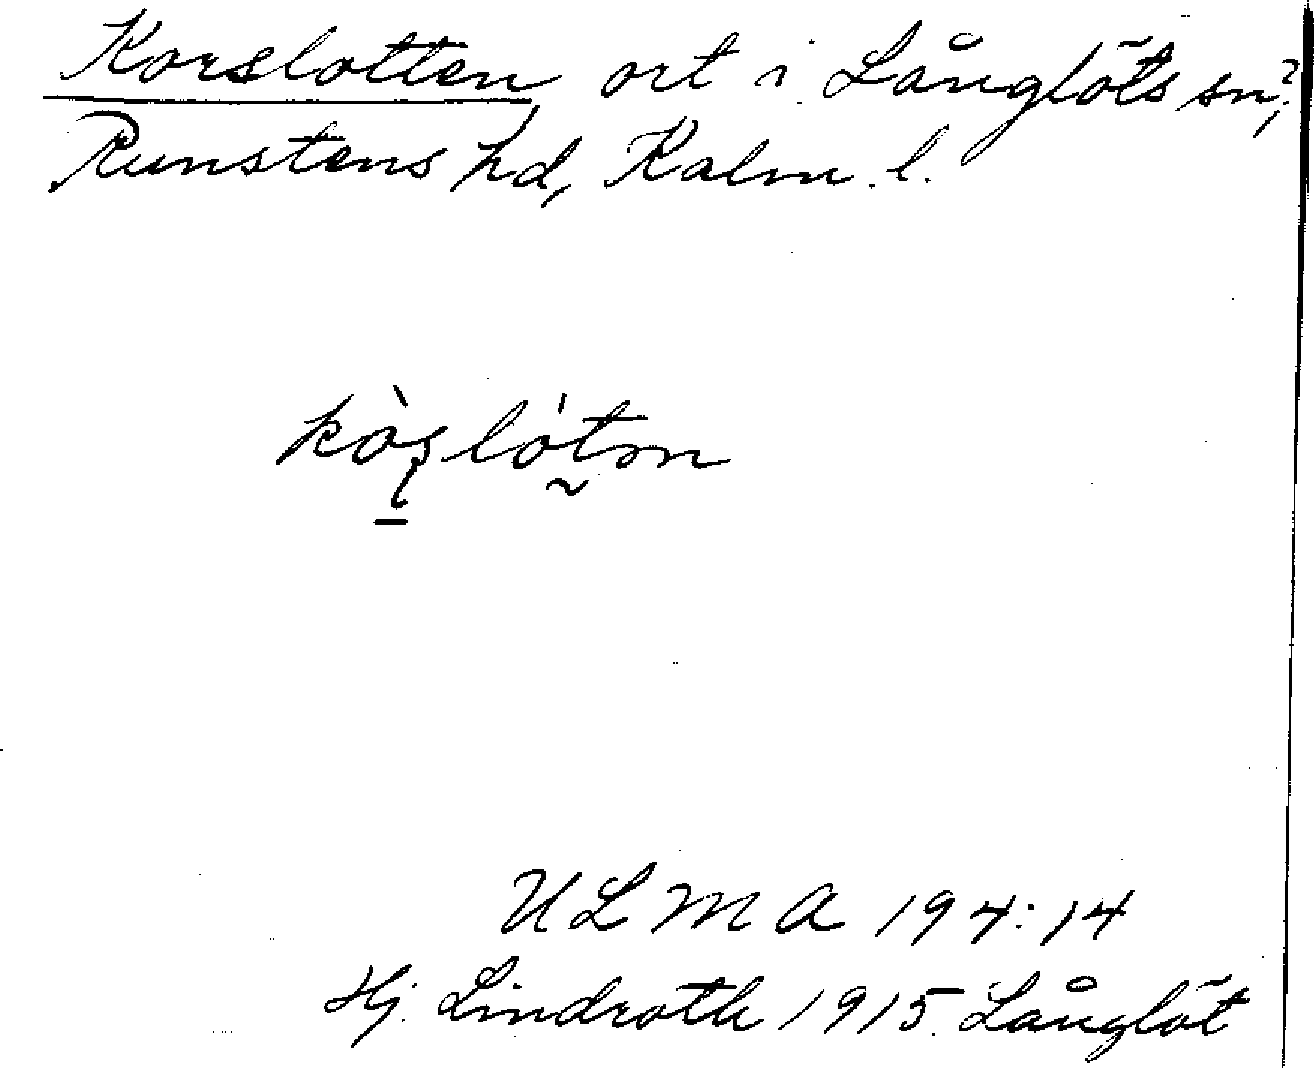 Korslotten, ort i Långlöts sn,?
Runstens hd, Kalm. l.
kòʂlótm
ULMA 194:14
Hj. Lindroth 1915. Långlöt